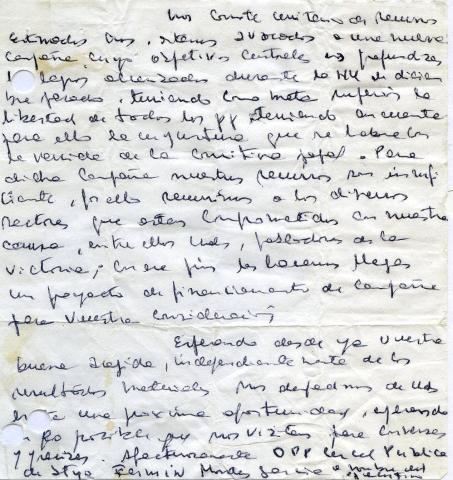 Nos Comite unitario de presos
Estimados Uds, estamos avocados a una nueva
campaña cuyo objetivos centrales es profundizar
logros alcanzados durante la HH de diciem
bre pasado, teniendo como meta superior la
libertad de todos los pp teniendo en cuenta
para ello la coyuntura que se habre con
la venida de la comitiva papal. Para
dicha campaña nuestros recursos son insufi
ciente, por ello recurrimos a los diversos
sectores que estan comprometidos con nuestra
causa, entre ellos Uds, pobladores de la
victoria, con ese fin les hacemos llegar
un proyecto de financiamiento de campaña
para vuestra consideración
Esperando desde ya vuestra
buena acojida, independiente mente de los
resultados materiales nos despedimos de Uds
hasta una proxima oportunidad, esperando
posible que nos visiten para conversar
Afectuosamente OPP Carcel Publica
de Stgo Fermin Montes Garcia